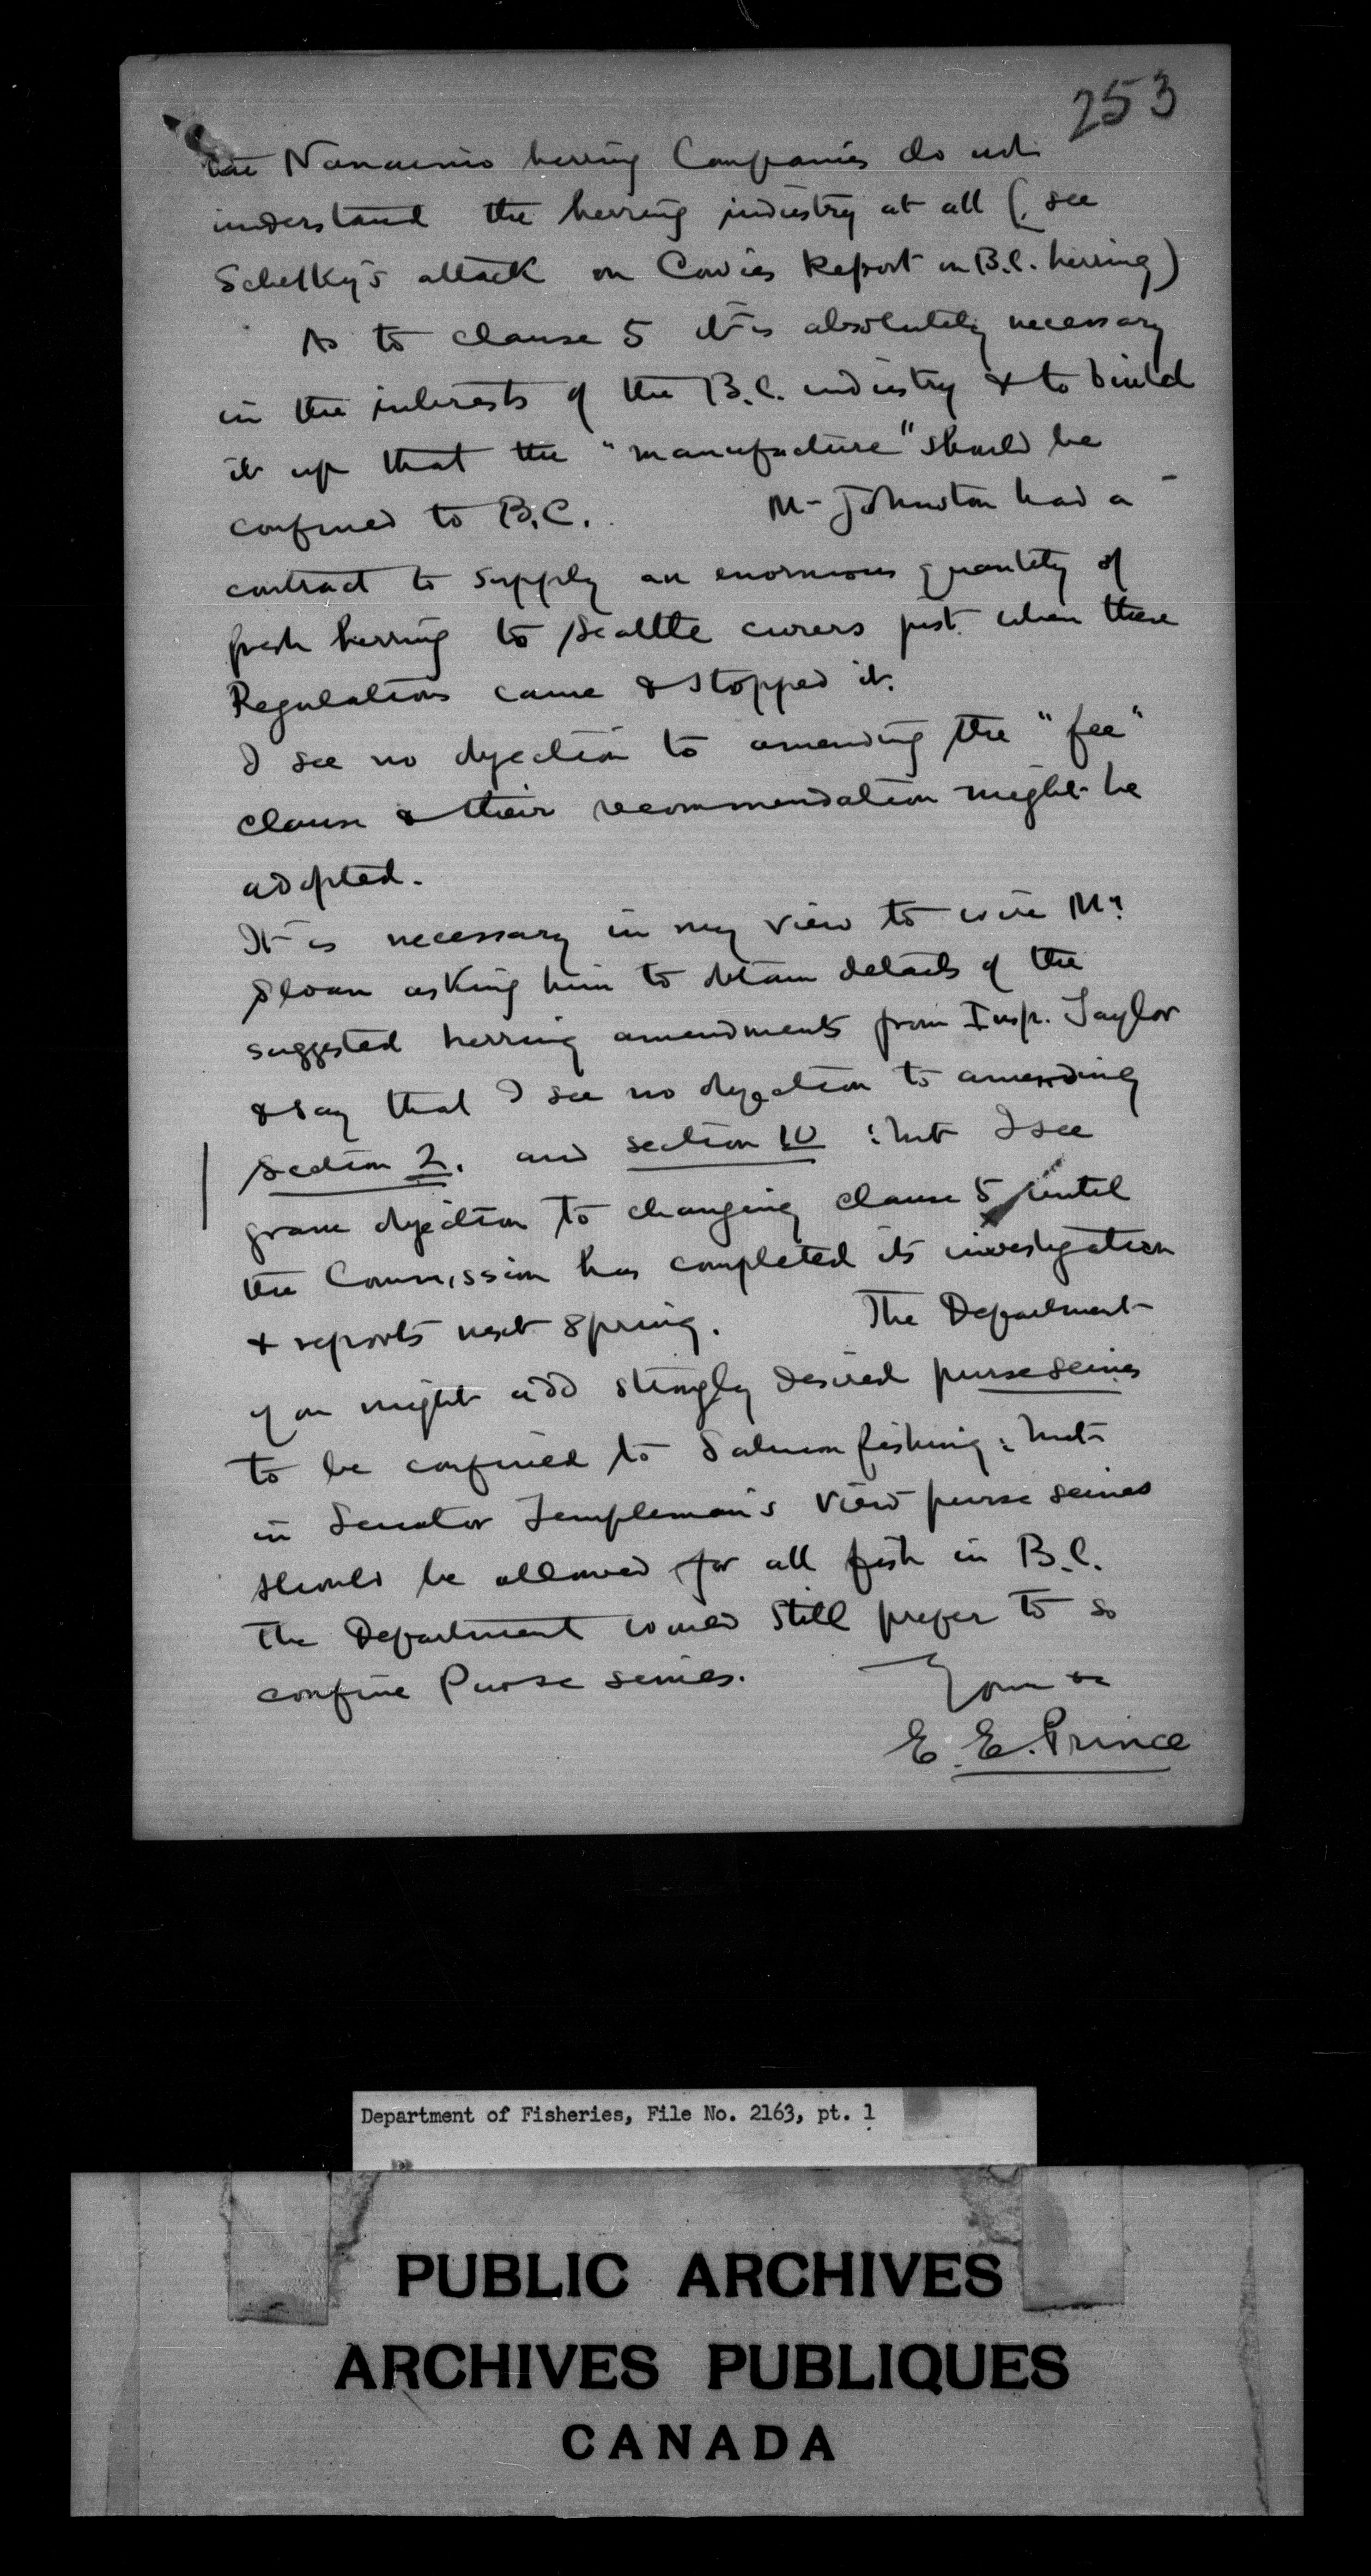 253
the Nanaimo herring Companies do not
understand the herring industry at all (see
Schelky's attack on Cowies Report on B.C. herring)
As to clause 5 it is absolutely necessary
in the interests of the B.C. industry & to build
it up that the "manufacture" should be
confined to B.C. Mr Johnston had a
contract to supply an enormous quantity of
fresh herring to Seattle curers just when these
Regulations came & stopped it.
I see no objection to amending the "fee"
clause & their recommendation might be
adopted.
It is necessary in my view to wire Mr
Sloan asking him to obtain details of the
suggested herring amendments from Insp. Taylor
& say that I see no objection to amending
Section 2. and section 10 : but I see
grave objection to changing clause 5 until
the Commission has completed its investigation
& reports next Spring. The Department
you might add strongly desired purse seines
to be confined to Salmon fishing : but
in Senator Templeman's view purse seines
should be allowed for all fish in B.C.
The Department would still prefer to so
confine Purse seines.
E. E. Prince
Department of Fisheries, File No. 2163, pt. 1
PUBLIC ARCHIVES
ARCHIVES PUBLIQUES
CANADA